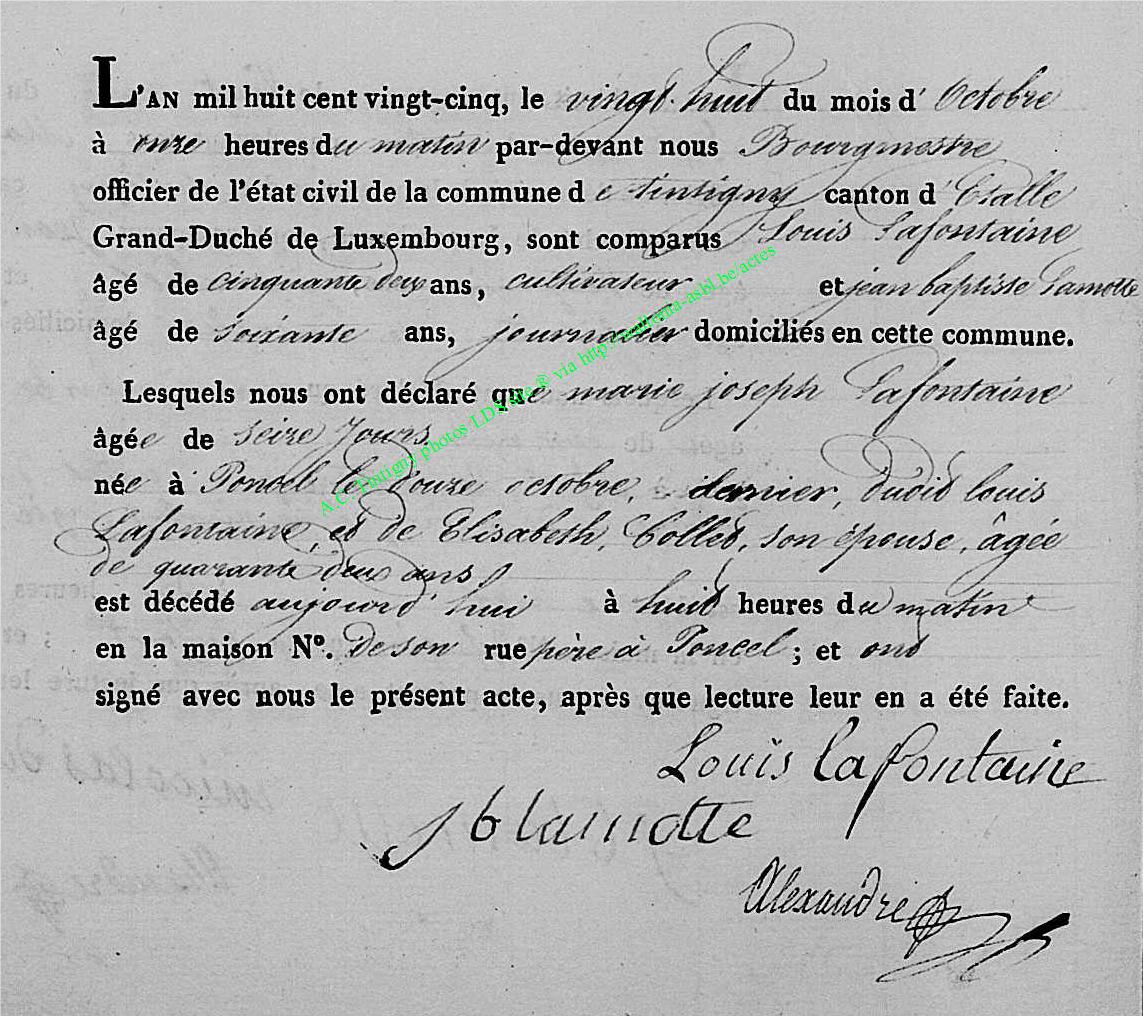 L'AN mil huit cent vingt-cinq, le vingt huit du mois d' Octobre
à onze heures du matin par-devant nous Bourgmestre
officier de l'état civil de la commune de tintigny canton d' Etalle
Grand-Duché de Luxembourg, sont comparus Louis Lafontaine
âgé de cinquante deux ans, cultivateur et jean baptiste Lamotte
âgé de soixante ans, journalier domiciliés en cette commune.
Lesquels nous ont déclaré que marie joseph Lafontaine
âgée de seize Jours
née à Poncel le douze octobre, dernier, dudit louis
Lafontaine, et de Elisabeth, Collet, son épouse, âgée
de quarante deux ans,
est décédé aujourd'hui à huit heures du matin
en la maison N°. de son rue père à Poncel ; et ont
signé avec nous le présent acte, après que lecture leur en a été faite.
Louis lafontaine
J b lamotte
Alexandre
A.C. Tintigny photos LDS site ® via http://wallonia-asbl.be/actes